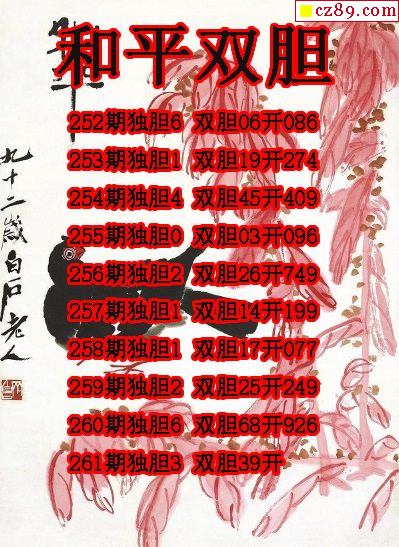 cz89.com
和平双胆
252期独胆6 双胆06开086
253期独胆1 双胆19开274
254期独胆4 双胆45开409
255期独胆0 双胆03开096
256期独胆2 双胆26开749
257期独胆1 双胆14开199
258期独胆1 双胆17开077
259期独胆2 双胆25开249
260期独胆6 双胆68开926
261期独胆3 双胆39开
九十二岁白石老人